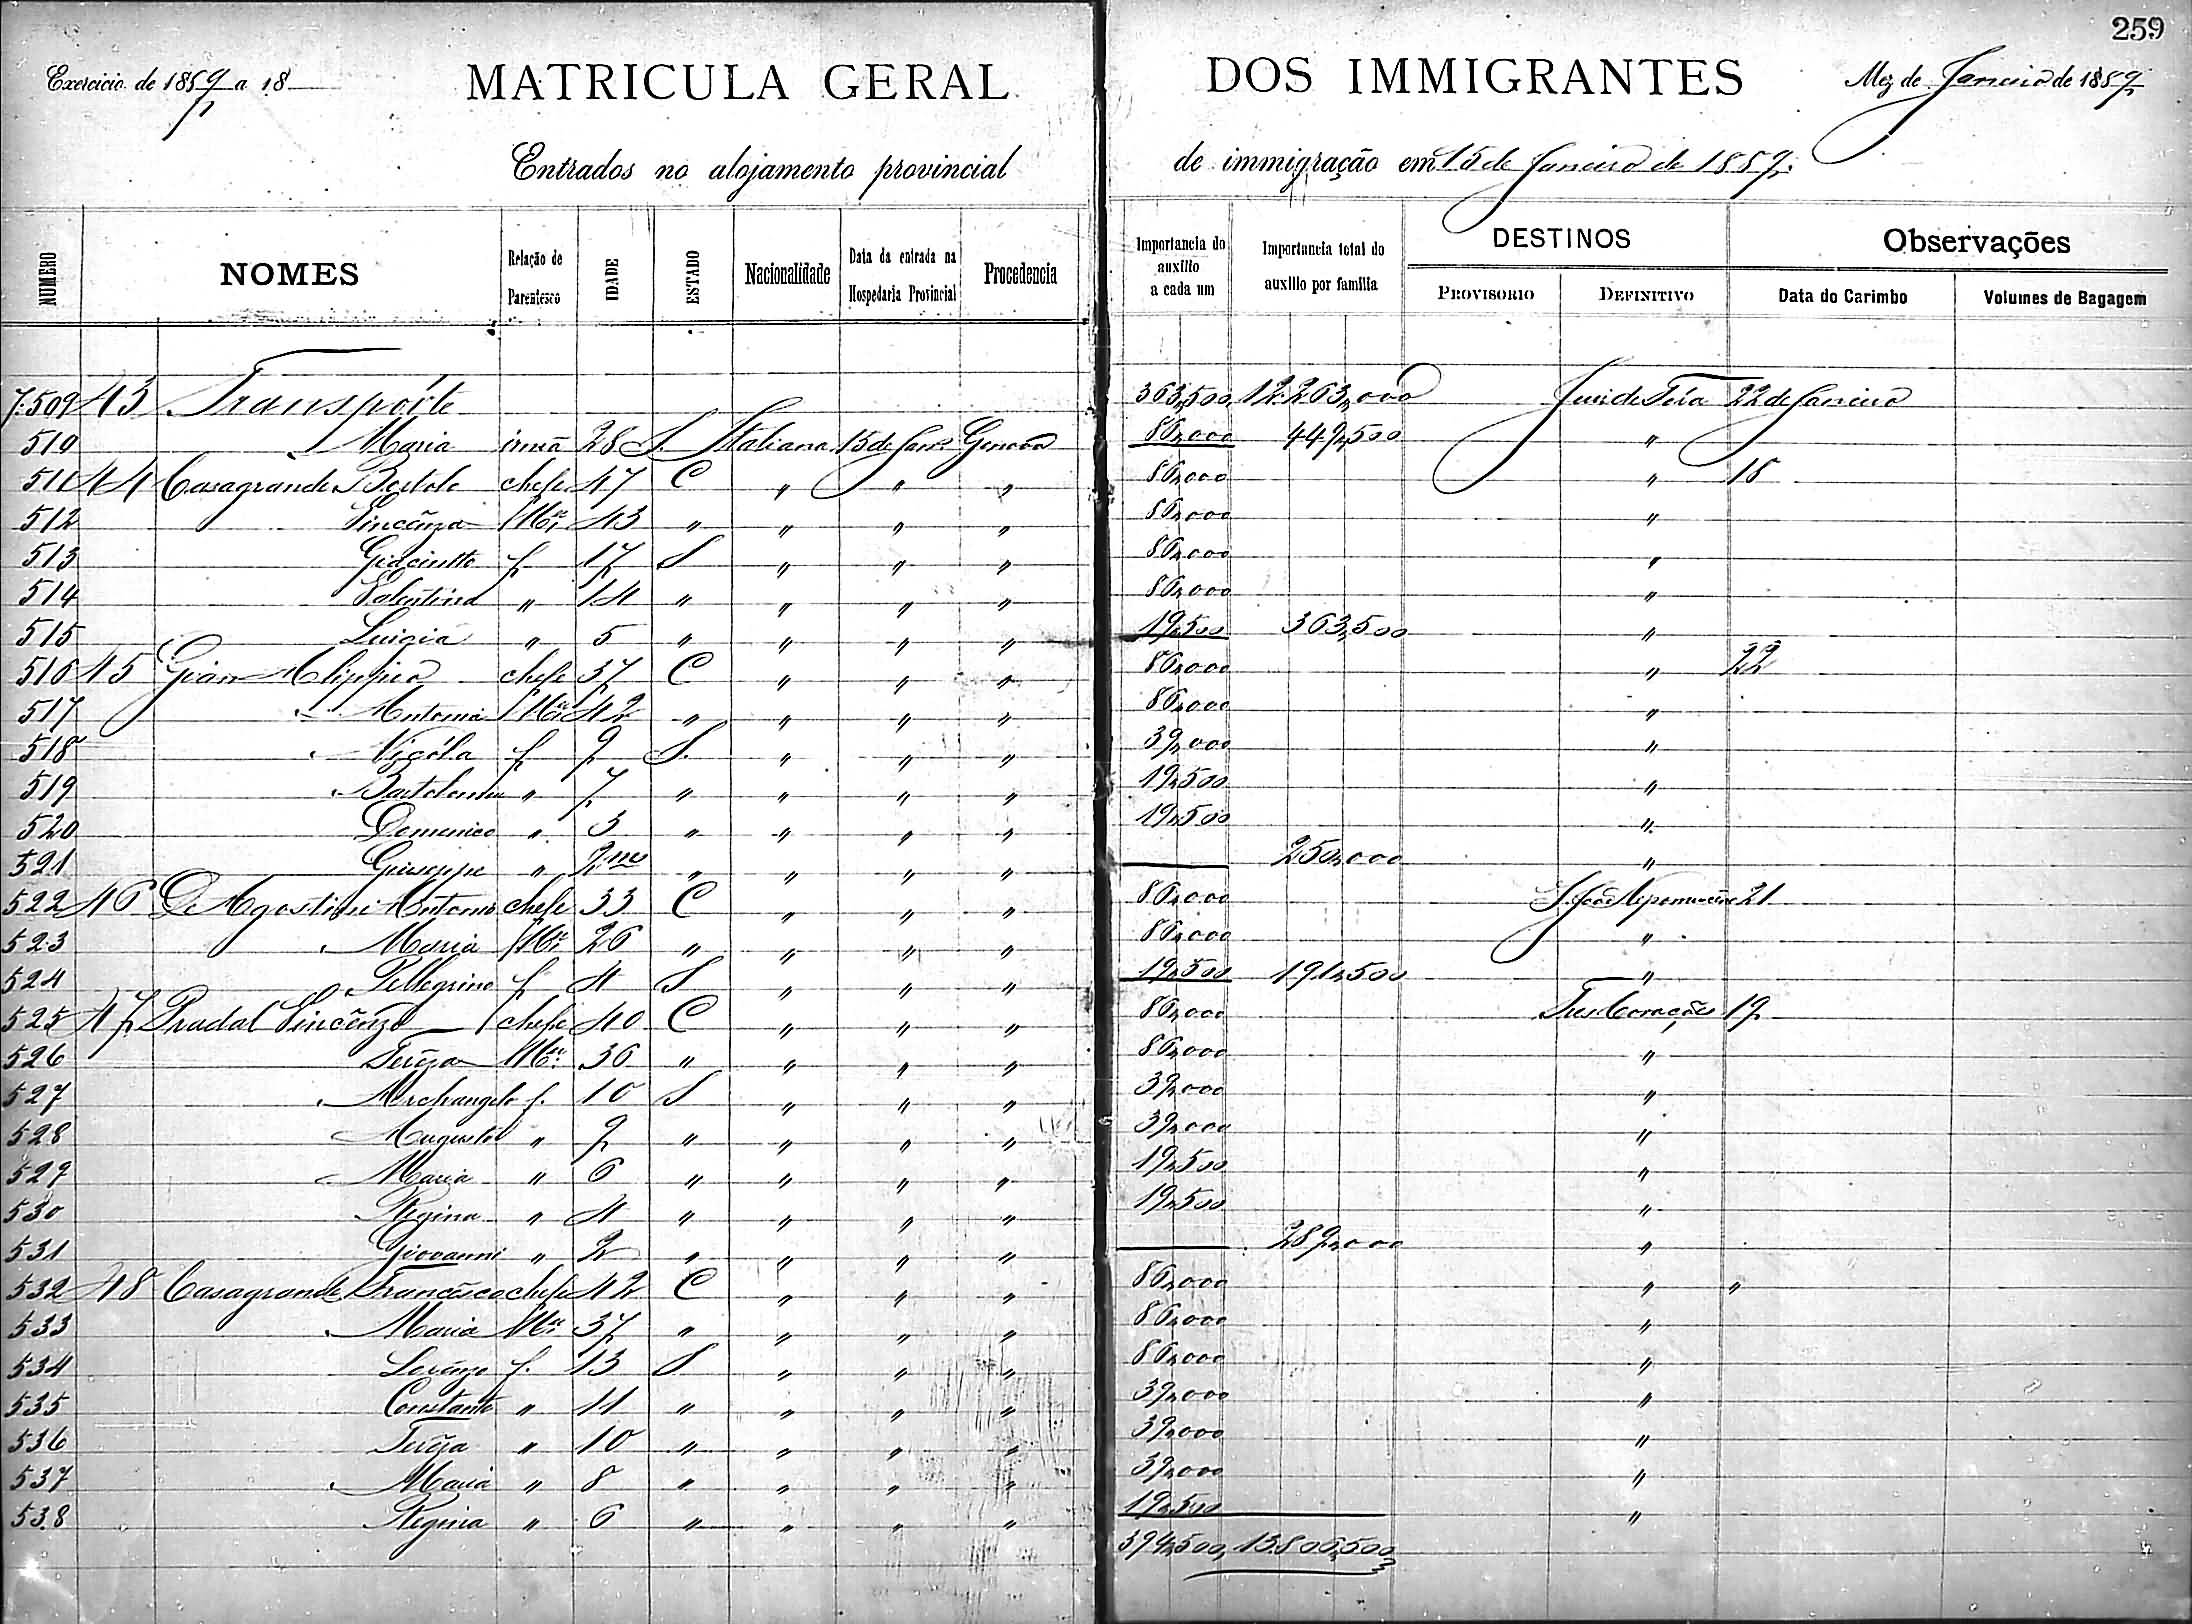 259
Exercicio de 1889 a 18
MATRICULA GERAL DOS IMMIGRANTES
Mez de Janeiro de 1889
Entrados no alojamento provincial de immigração em 15 de Janeiro de 1889.
NUMERO NOMES Relação de Parentesco IDADE ESTADO Nacionalidade Data da entrada na Hospedaria Provincial Procedencia Importancia do auxilio a cada um Importancia total do auxilio por familia DESTINOS PROVISORIO DEFINITIVO Observações Data do Carimbo Volumes de Bagagem
7.509 43 Transporte 363,500 12.263,000 Juiz de Fóra 22 de Janeiro
510 Maria irmã 28 S. Italiana 15 de Janº Genova 86,000 449,500 "
511 44 Casagrande Bortolo chefe 47 C " " " 86,000 " 18
512 Vincenza Mer 43 " " " " 86,000 "
513 Giacintto f 17 S " " " 86,000 "
514 Valentina " 14 " " " " 86,000 "
515 Luigia " 5 " " " " 19,500 363,500 "
516 45 Gian chefe 37 C " " " 86,000 " 22
517 Antonia Mer 42 " " " " 86,000 "
518 f 9 S. " " " 39,000 "
519 Bartolomeu " 7 " " " " 19,500 "
520 Domenico " 3 " " " " 19,500 "
521 Giuseppe " 2 mes " " " " 250,000 "
522 46 De Agostini Antonio chefe 33 C " " " 86,000 S. João Nepomuceno 21
523 Maria Mer 26 " " " " 86,000 "
524 Pellegrino f 4 S " " " 19,500 191,500 "
525 47 Pradal Vincenzo chefe 40 C " " " 86,000 Tres Corações 19
526 Tereza Mer 36 " " " " 86,000 "
527 Archangelo f. 10 S " " " 39,000 "
528 Augusto " 9 " " " " 39,000 "
529 Maria " 6 " " " " 19,500 "
530 Regina " 4 " " " " 19,500 "
531 Giovanni " 2 " " " " 289,000 "
532 48 Casagrande Francesco chefe 42 C " " " 86,000 " "
533 Maria Mer 37 " " " " 86,000 "
534 Lorenzo f. 13 S " " " 86,000 "
535 Constante " 11 " " " " 39,000 "
536 Tereza " 10 " " " " 39,000 "
537 Maria " 8 " " " " 39,000 "
538 Regina " 6 " " " " 19,500 "
394,500 13.806,500